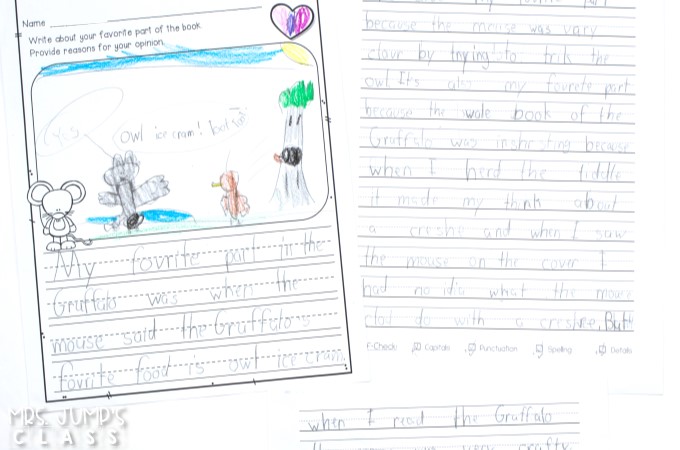 Name
Write about your favorite part of the book.
Provide reasons for your opinion.
Yes
Owl ice cram!
My fovrite part in the
Gruffalo was when the
mouse said the Gruffalo's
fovrite food is owl ice cram.
because the mouse was vary
clavr by trying to trik the
owl. It's also my fovrete part
because the wole book of the
Gruffalo was inshresting because
when I herd the tiddle
it made my think about
a creshe and when I saw
the mouse on the cover I
had no idia what the mows
clod do with a creshre. But
F-Check: Capitals Punctuation Spelling Details
when I read the Gruffalo
was very crafty.
MRS. JUMP'S
CLASS